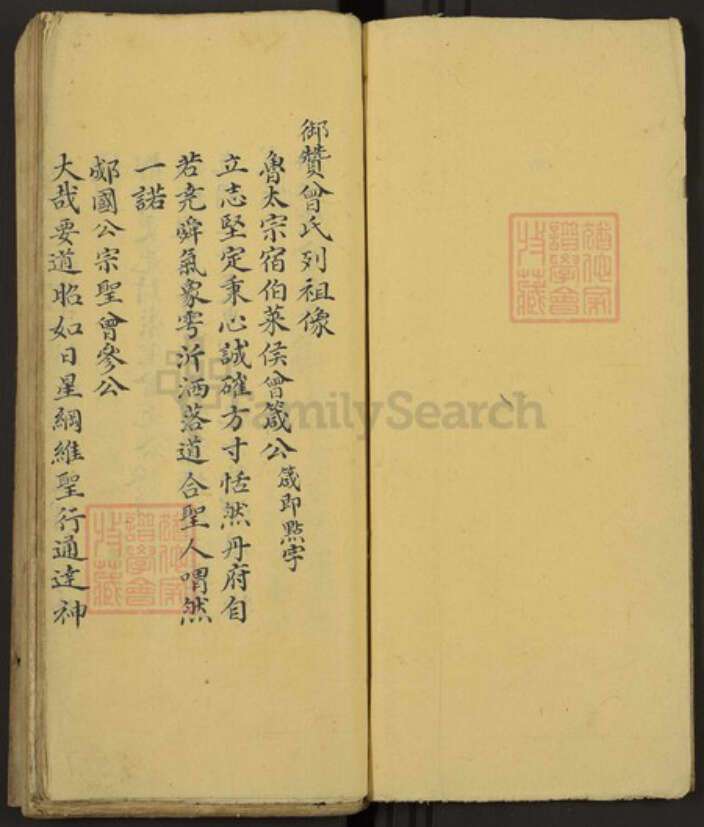 御贊曾氏列祖像
魯太宗宿伯萊侯曾箴公 箴即點字
立志堅定秉心誠確方寸恬然丹府自
若堯舜氣象雩沂洒落道合聖人喟然
一諾
郕國公宗聖曾參公
大哉要道昭如日星綱維聖行通達神
FamilySearch